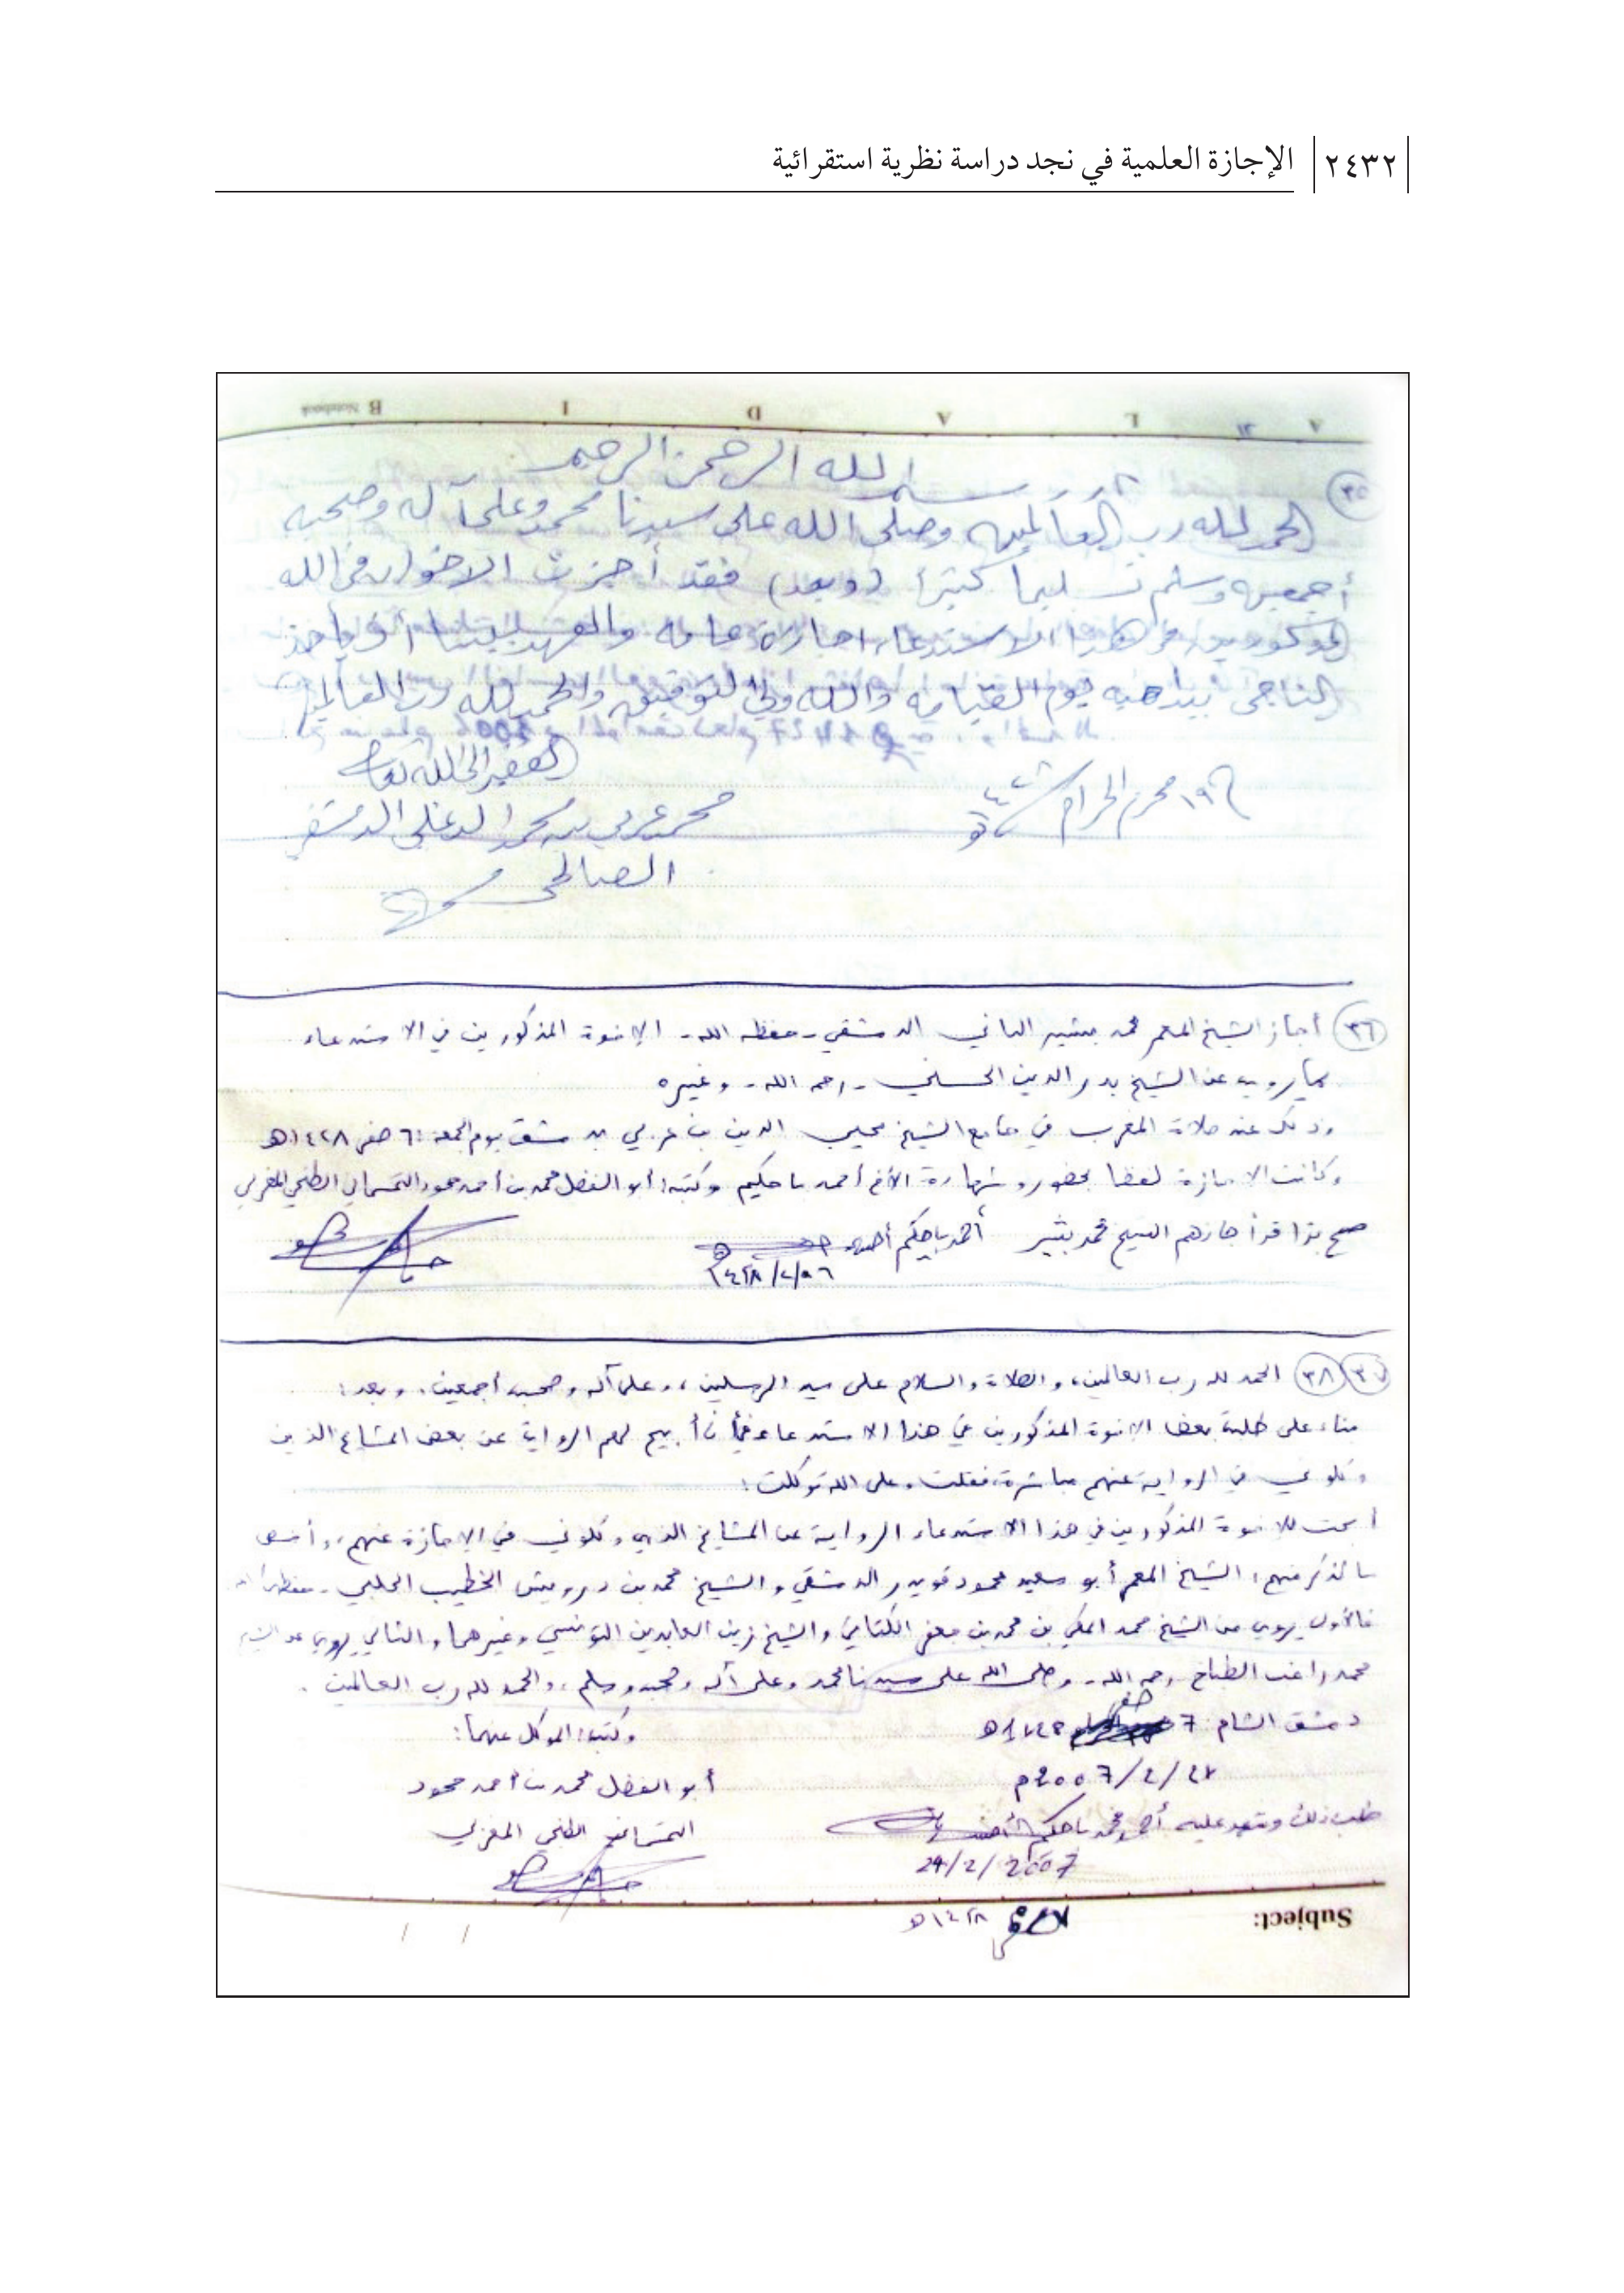 ٢٤٣٢ الإجازة العلمية في نجد دراسة نظرية استقرائية
A L A D I B Notebook
٣٥
بسم الله الرحمن الرحيم
الحمد لله رب العالمين وصلى الله على سيدنا محمد وعلى آله وصحبه
أجمعين وسلم تسليما كثيرا (وبعد) فقد أجزت الاخوان في الله
المذكورين في هذا الاستدعاء اجازة عامة والعهد بيننا أن يأخذ
الناجي بيد أخيه يوم القيامة والله ولي التوفيق والحمد لله رب العالمين
الفقير إلى الله تعالى
١٩ محرم الحرام
محمد عربي بن محمد الدغلي الدمشقي
الصالحي
٣٦ أجاز الشيخ المعمر محمد بشير الباني الدمشقي - حفظه الله - الإخوة المذكورين في الاستدعاء
بما يرويه عن الشيخ بدر الدين الحسني - رحمه الله - وغيره
وذلك عند صلاة المغرب في جامع الشيخ محيي الدين بن عربي بدمشق يوم الجمعة ٦ صفر ١٤٢٨هـ
وكانت الإجازة لفظا بحضور وشهادة الأخ أحمد باحكيم وكتبه: أبو الفضل محمد بن أحمد محمود التمسماني الطنجي المغربي
صح هذا قد أجازهم الشيخ محمد بشير أحمد باحكيم
٦/٢/١٤٢٨
٣٧ ٣٨ الحمد لله رب العالمين، والصلاة والسلام على سيد المرسلين، وعلى آله وصحبه أجمعين. وبعد:
بناء على طلب بعض الإخوة المذكورين في هذا الاستدعاء في أن أبيح لهم الرواية عن بعض المشايخ الذين
وكلوني في الرواية عنهم مباشرة، فقلت وعلى الله توكلت:
أبحت للإخوة المذكورين في هذا الاستدعاء الرواية عن المشايخ الذين وكلوني في الإجازة عنهم، وأخص
بالذكر منهم: الشيخ المعمر أبو سعيد محمود قويدر الدمشقي والشيخ محمد بن درويش الخطيب الحلبي - حفظهما الله
فالأول يروي عن الشيخ محمد المكي بن محمد بن جعفر الكتاني والشيخ زين العابدين التونسي وغيرهما، والثاني يروي عن الشيخ
محمد راغب الطباخ رحمه الله - وصلى الله على سيدنا محمد وعلى آله وصحبه وسلم، والحمد لله رب العالمين.
دمشق الشام 7 صفر وكتبه: الموكل عنهما:
أبو الفضل محمد بن أحمد محمود
التمسماني الطنجي المغربي
طلب ذلك وشهد عليه أحمد محمد باحكيم
24/2/2007
١٤٢٨هـ
Subject: